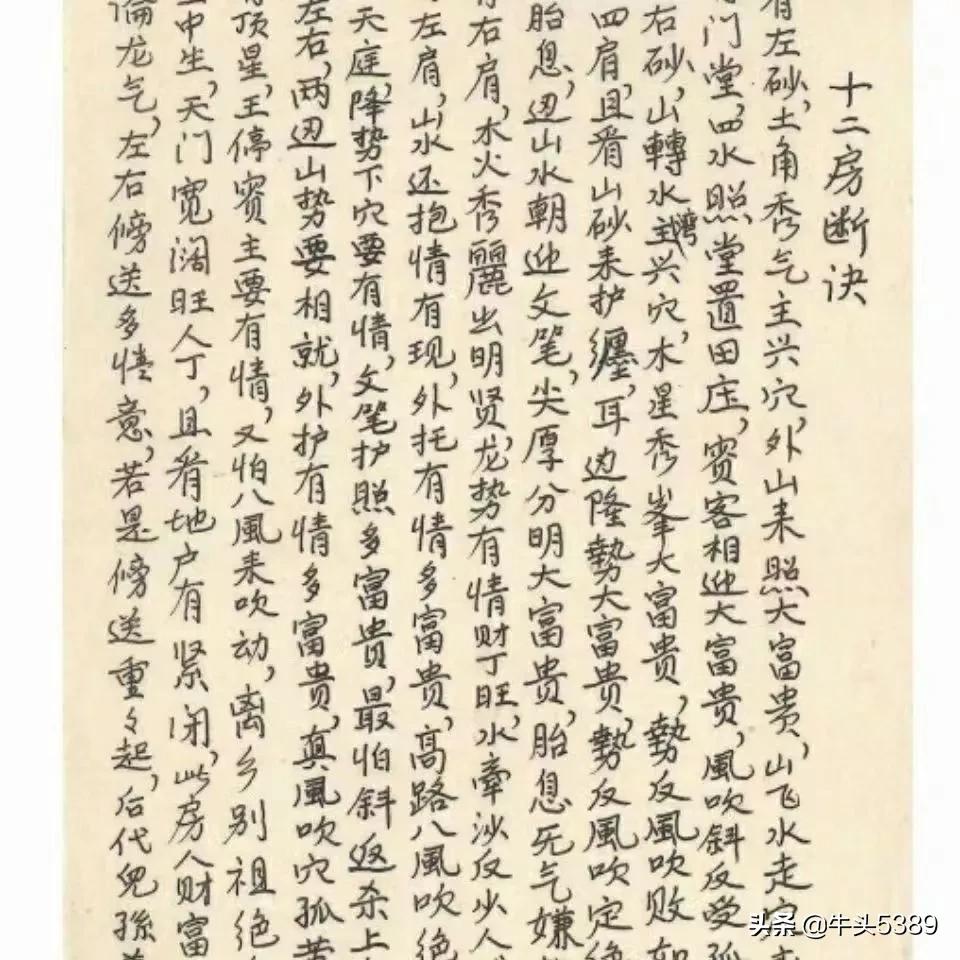 十二房断诀
有左砂,土角秀气主兴穴,外山来照大富贵,山飞水走定
门堂,四水照堂置田庄,宾客相迎大富贵,風吹斜反受孤
右砂,山轉水湾主兴穴,木星秀峯大富贵,勢反風吹败
四肩,且看山砂来护纒,耳边隆勢大富贵,勢反風吹定绝
胎息,边山水朝迎文笔,尖厚分明大富贵,胎息死气嫌
右肩,木火秀麗出明贤,龙势有情财丁旺,水牵沙反少人
左肩,山水还抱情有现,外托有情多富贵,高路八風吹绝
天庭,降势下穴要有情,文笔护照多富贵,最怕斜返杀上
左右,两边山势要相就,外护有情多富贵,真風吹穴孤苦
顶星,王停宾主要有情,又怕八風来吹动,离乡别祖绝
中生,天门宽阔旺人丁,且看地户有紧闭,此房人财富
龙气,左右傍送多情意,若是傍送重々起,后代兒孫
头条@牛头5389